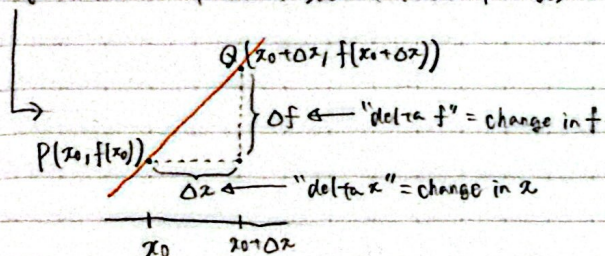 Q(x0+Δx, f(x0+Δx))
Δf ← "delta f" = change in f
P(x0, f(x0))
Δx ← "delta x" = change in x
x0 x0+Δx